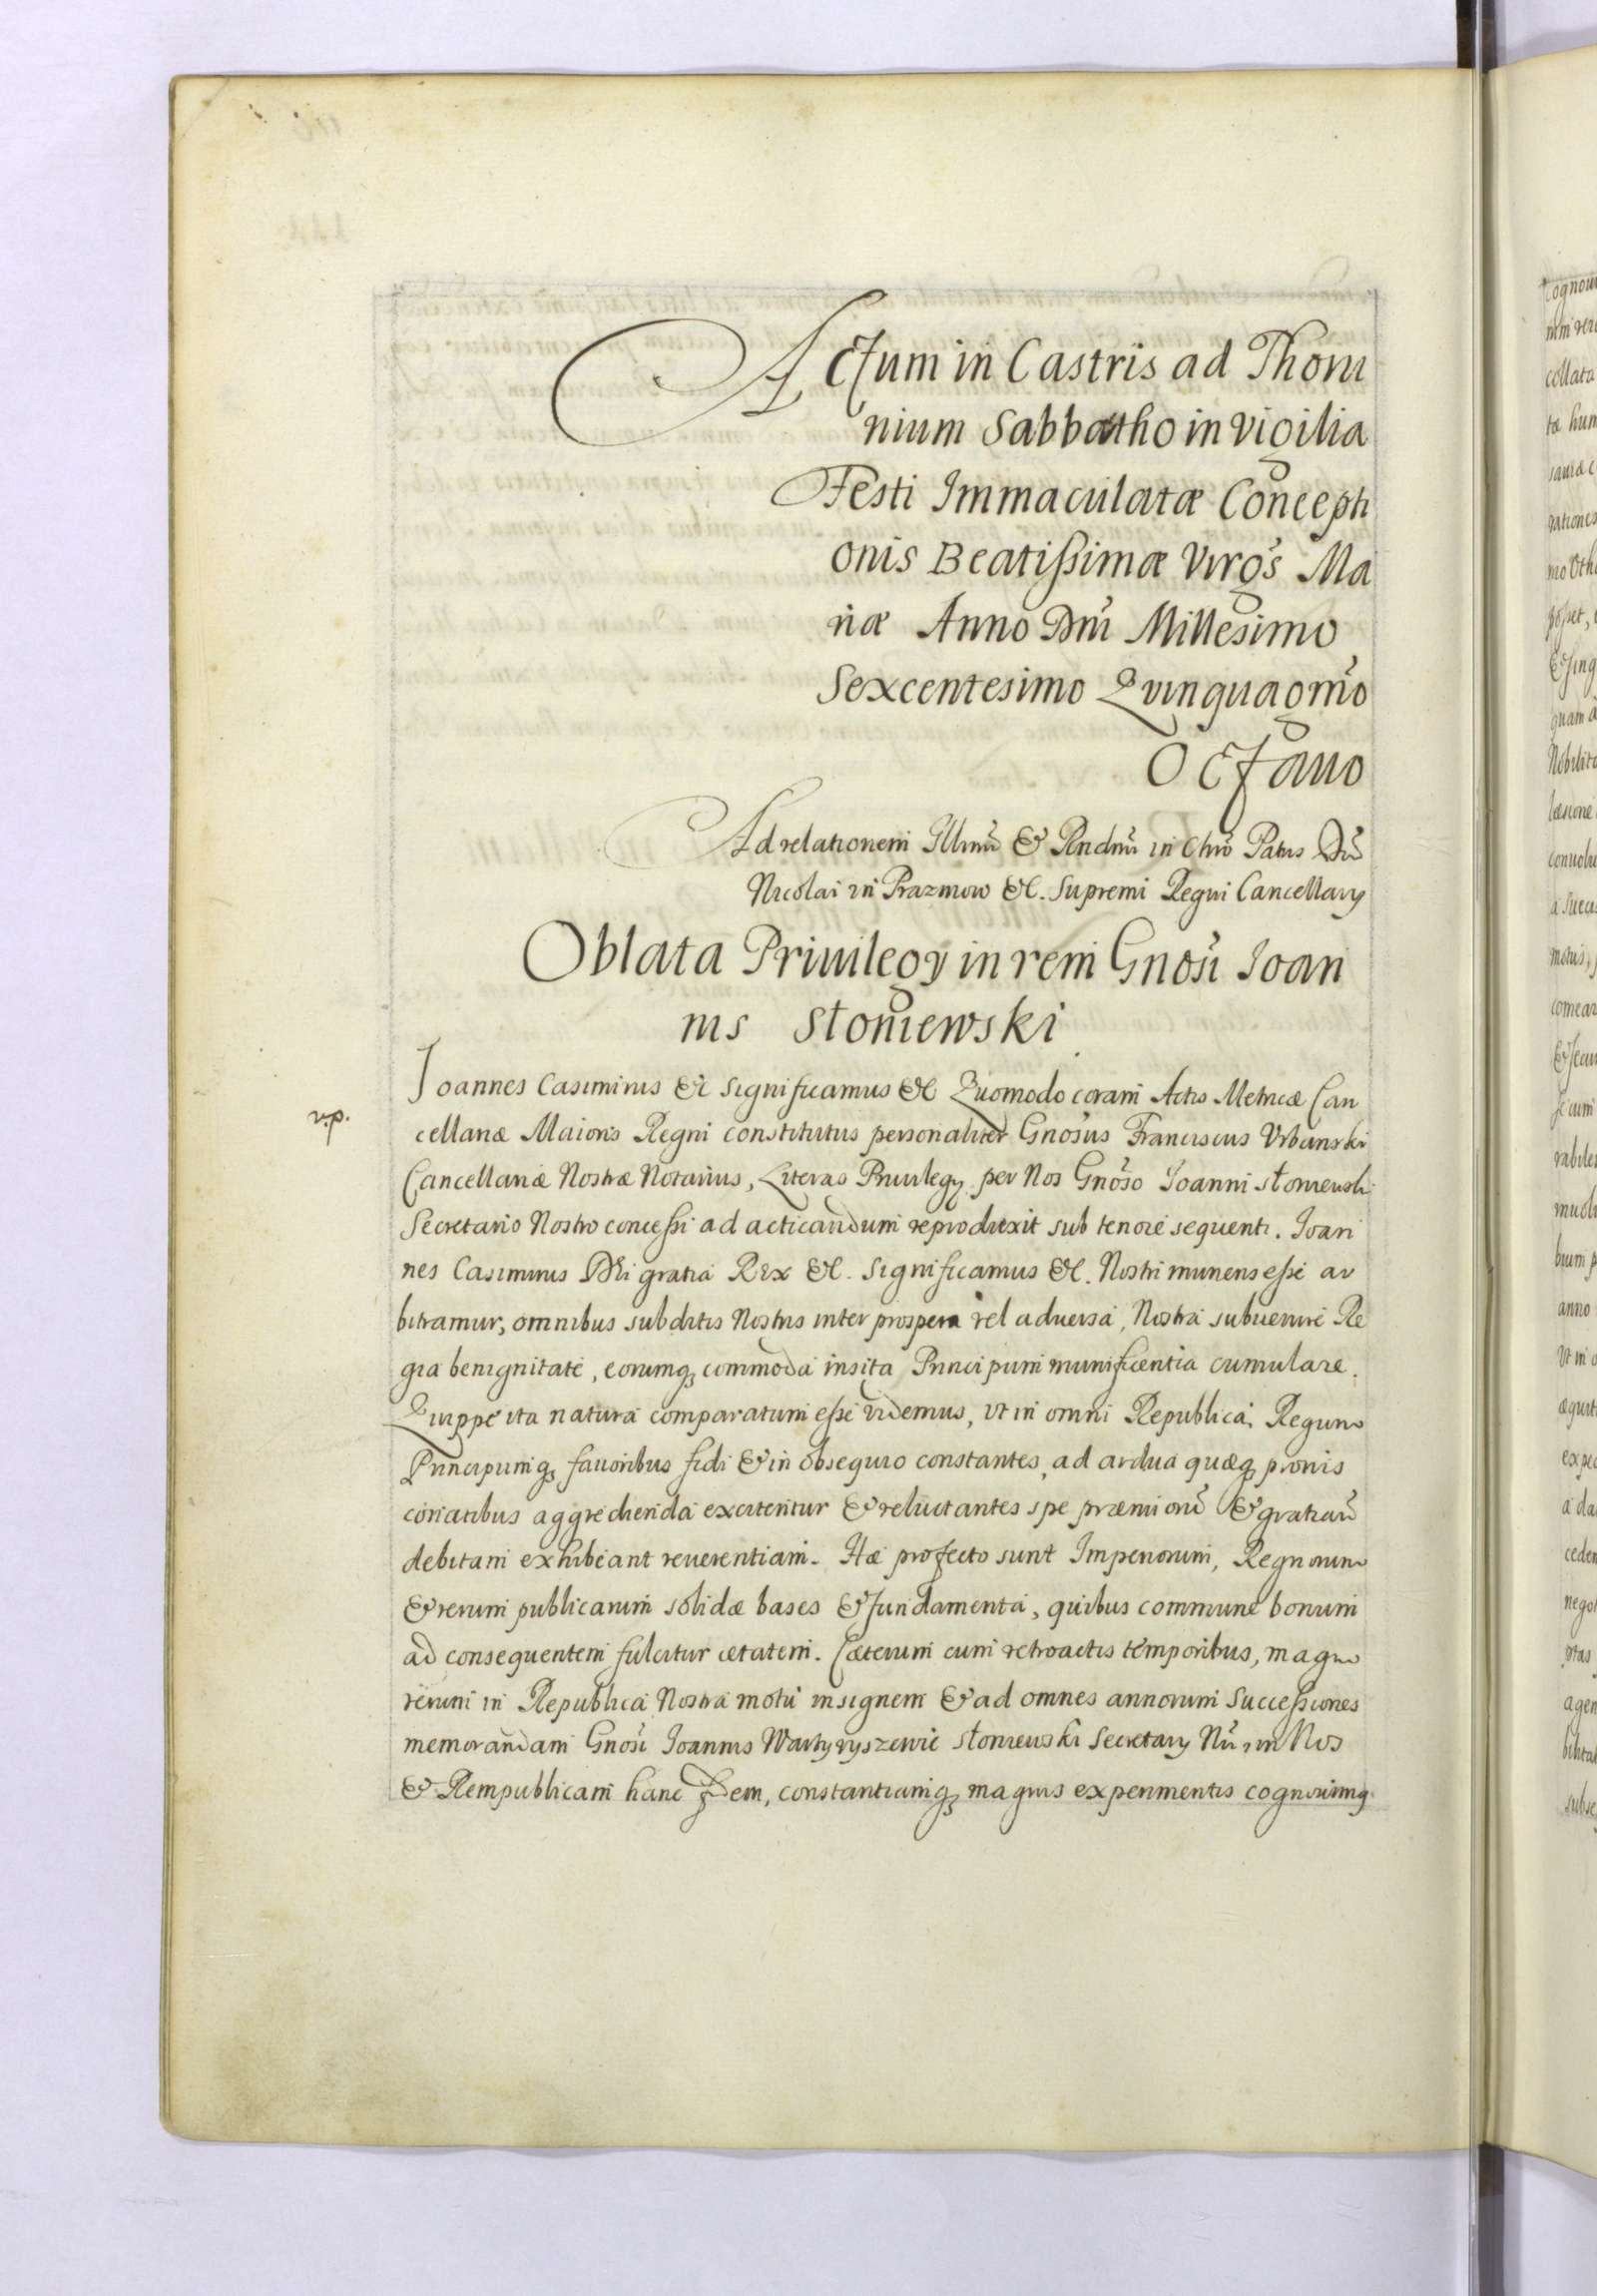 Actum in Castris ad Thoru
nium Sabbatho in Vigilia
Festi Immaculatæ Concepti
onis Beatissimæ Virgs̃ Ma
riæ Anno Dni Millesimo
Sexcentesimo Quinquagmõ
Octauo
Ad relationem Illmi & Rndmi in Chro Patris Dni
Nicolai in Prazmow &c. Supremi Regni Cancellarij
Oblata Priuilegij in rem Gnosi Ioan
nis Słoniewski
Ioannes Casimirus &c Significamus &c Quomodo coram Actis Metricæ Can
v.p.
cellariæ Maioris Regni constitutus personaliter Gnosus Franciscus Vrbanski
Cancellariæ Nostræ Notarius, Literas Priuilegij per Nos Gnoso Ioanni Słoniewski
Secretario Nostro concessi ad acticandum reproduxit sub tenore sequenti. Ioan
nes Casimirus Dei gratia Rex &c. Significamus &c. Nostri muneris esse ar
bitramur, omnibus subditis Nostris inter prospera vel aduersa, Nostra subuenire Re
gia benignitate, eorumq, commoda insita Principum munificentia cumulare.
Quippe ita natura comparatum esse videmus, vt in omni Republica, Regum
Principumq, fauoribus fidi & in obsequio constantes, ad ardua quæq, pronis
conatibus aggredienda excitentur & reluctantes spe præmiorũ & gratiarũ
debitam exhibeant reuerentiam. Hæ profecto sunt Imperiorum, Regnorum
& rerum publicarum solidæ bases & fundamenta, quibus commune bonum
ad consequentem fulcitur ætatem. Cæterum cum retroactis temporibus, magno
rerum in Republica Nostra motu insignem & ad omnes annorum Successiones
memorandam Gnosi Ioannis Słoniewski Secretarij Nri in Nos
& Rempublicam hanc fidem, constantiamq, magnis experimentis cognouimq